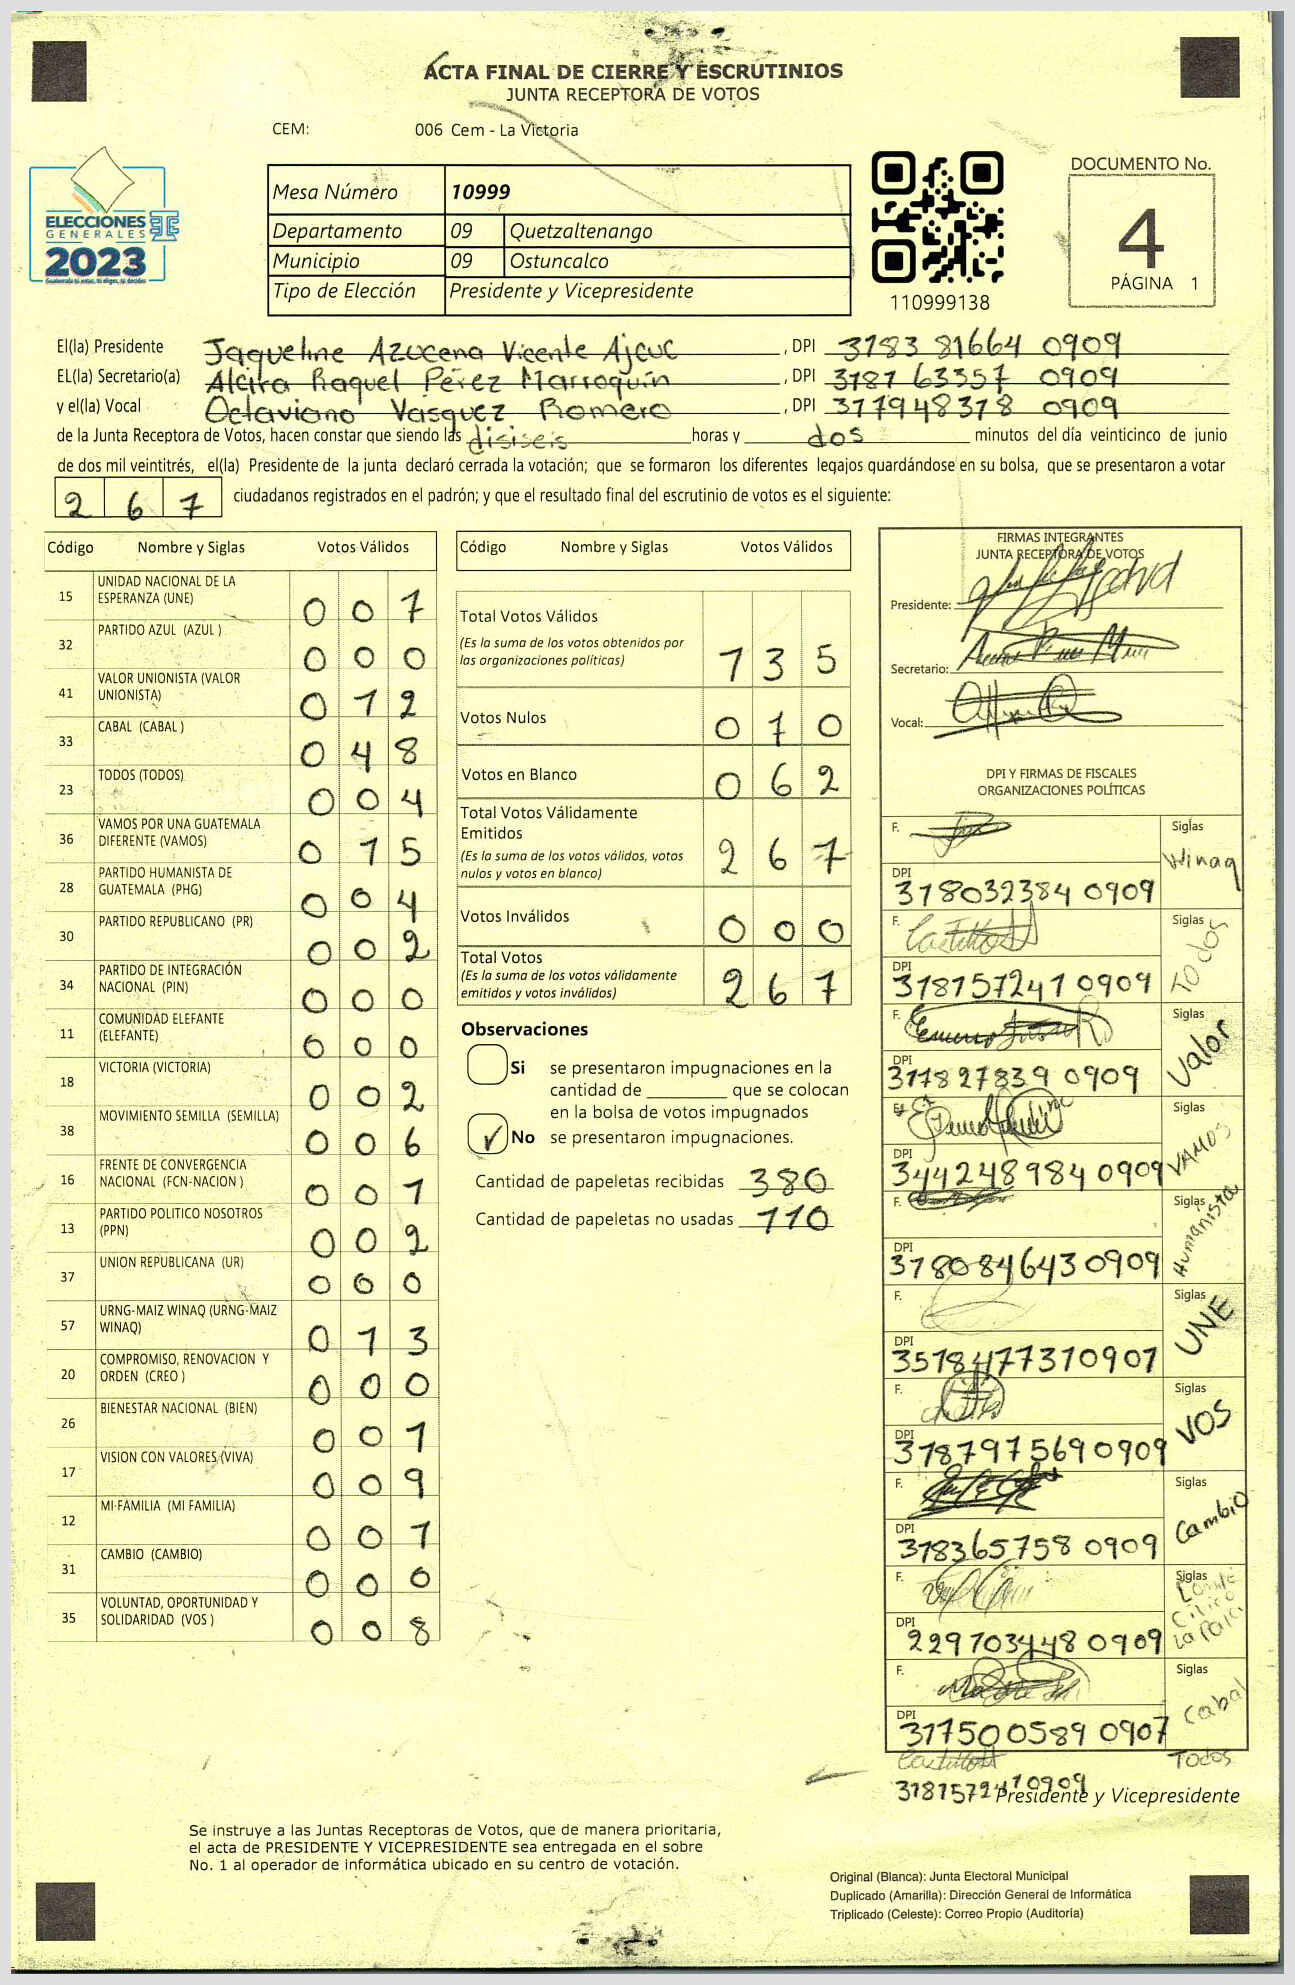 ACTA FINAL DE CIERRE Y ESCRUTINIOS
JUNTA RECEPTORA DE VOTOS
CEM: 006 Cem - La Victoria
ELECCIONES
GENERALES
2023
Mesa Número 10999
Departamento 09 Quetzaltenango
Municipio 09 Ostuncalco
Tipo de Elección Presidente y Vicepresidente
110999138
DOCUMENTO No.
4
PÁGINA 1
El(la) Presidente Jaqueline Azucena Vicente Ajcuc, DPI 3183 81664 0909
EL(la) Secretario(a) Alcira Raquel Pérez Marroquín, DPI 3187 63357 0909
y el(la) Vocal Octaviano Vasquez Romero, DPI 317948378 0909
de la Junta Receptora de Votos, hacen constar que siendo las disiseis horas y dos minutos del día veinticinco de junio
de dos mil veintitrés, el(la) Presidente de la junta declaró cerrada la votación; que se formaron los diferentes legajos guardándose en su bolsa, que se presentaron a votar
267 ciudadanos registrados en el padrón; y que el resultado final del escrutinio de votos es el siguiente:
Código Nombre y Siglas Votos Válidos
15 UNIDAD NACIONAL DE LA ESPERANZA (UNE) 007
32 PARTIDO AZUL (AZUL ) 000
41 VALOR UNIONISTA (VALOR UNIONISTA) 012
33 CABAL (CABAL ) 048
23 TODOS (TODOS) 004
36 VAMOS POR UNA GUATEMALA DIFERENTE (VAMOS) 015
28 PARTIDO HUMANISTA DE GUATEMALA (PHG) 004
30 PARTIDO REPUBLICANO (PR) 002
34 PARTIDO DE INTEGRACIÓN NACIONAL (PIN) 000
11 COMUNIDAD ELEFANTE (ELEFANTE) 000
18 VICTORIA (VICTORIA) 002
38 MOVIMIENTO SEMILLA (SEMILLA) 006
16 FRENTE DE CONVERGENCIA NACIONAL (FCN-NACION ) 001
13 PARTIDO POLITICO NOSOTROS (PPN) 002
37 UNION REPUBLICANA (UR) 000
57 URNG-MAIZ WINAQ (URNG-MAIZ WINAQ) 013
20 COMPROMISO, RENOVACION Y ORDEN (CREO ) 000
26 BIENESTAR NACIONAL (BIEN) 001
17 VISION CON VALORES (VIVA) 009
12 MI FAMILIA (MI FAMILIA) 001
31 CAMBIO (CAMBIO) 000
35 VOLUNTAD, OPORTUNIDAD Y SOLIDARIDAD (VOS ) 008
Código Nombre y Siglas Votos Válidos
Total Votos Válidos
(Es la suma de los votos obtenidos por las organizaciones políticas) 135
Votos Nulos 010
Votos en Blanco 062
Total Votos Válidamente Emitidos
(Es la suma de los votos válidos, votos nulos y votos en blanco) 267
Votos Inválidos 000
Total Votos
(Es la suma de los votos válidamente emitidos y votos inválidos) 267
Observaciones
Si se presentaron impugnaciones en la
cantidad de ________ que se colocan
en la bolsa de votos impugnados
✓ No se presentaron impugnaciones.
Cantidad de papeletas recibidas 380
Cantidad de papeletas no usadas 110
FIRMAS INTEGRANTES
JUNTA RECEPTORA DE VOTOS
Presidente:
Secretario:
Vocal:
DPI Y FIRMAS DE FISCALES
ORGANIZACIONES POLÍTICAS
F. Siglas Winaq
DPI 318032384 0909
F. Siglas Todos
DPI 318157241 0909
F. Siglas Valor
DPI 317827839 0909
F. Siglas VAMOS
DPI 344248984 0909
F. Siglas Humanista
DPI 318084643 0909
F. Siglas UNE
DPI 351847737 0901
F. Siglas VOS
DPI 318797569 0909
F. Siglas Cambio
DPI 318365758 0909
F. Siglas Comite Civico La Pala
DPI 229703448 0909
F. Siglas Cabal
DPI 317500589 0907
Todos
318157241 0909
Presidente y Vicepresidente
Se instruye a las Juntas Receptoras de Votos, que de manera prioritaria,
el acta de PRESIDENTE Y VICEPRESIDENTE sea entregada en el sobre
No. 1 al operador de informática ubicado en su centro de votación.
Original (Blanca): Junta Electoral Municipal
Duplicado (Amarilla): Dirección General de Informática
Triplicado (Celeste): Correo Propio (Auditoría)